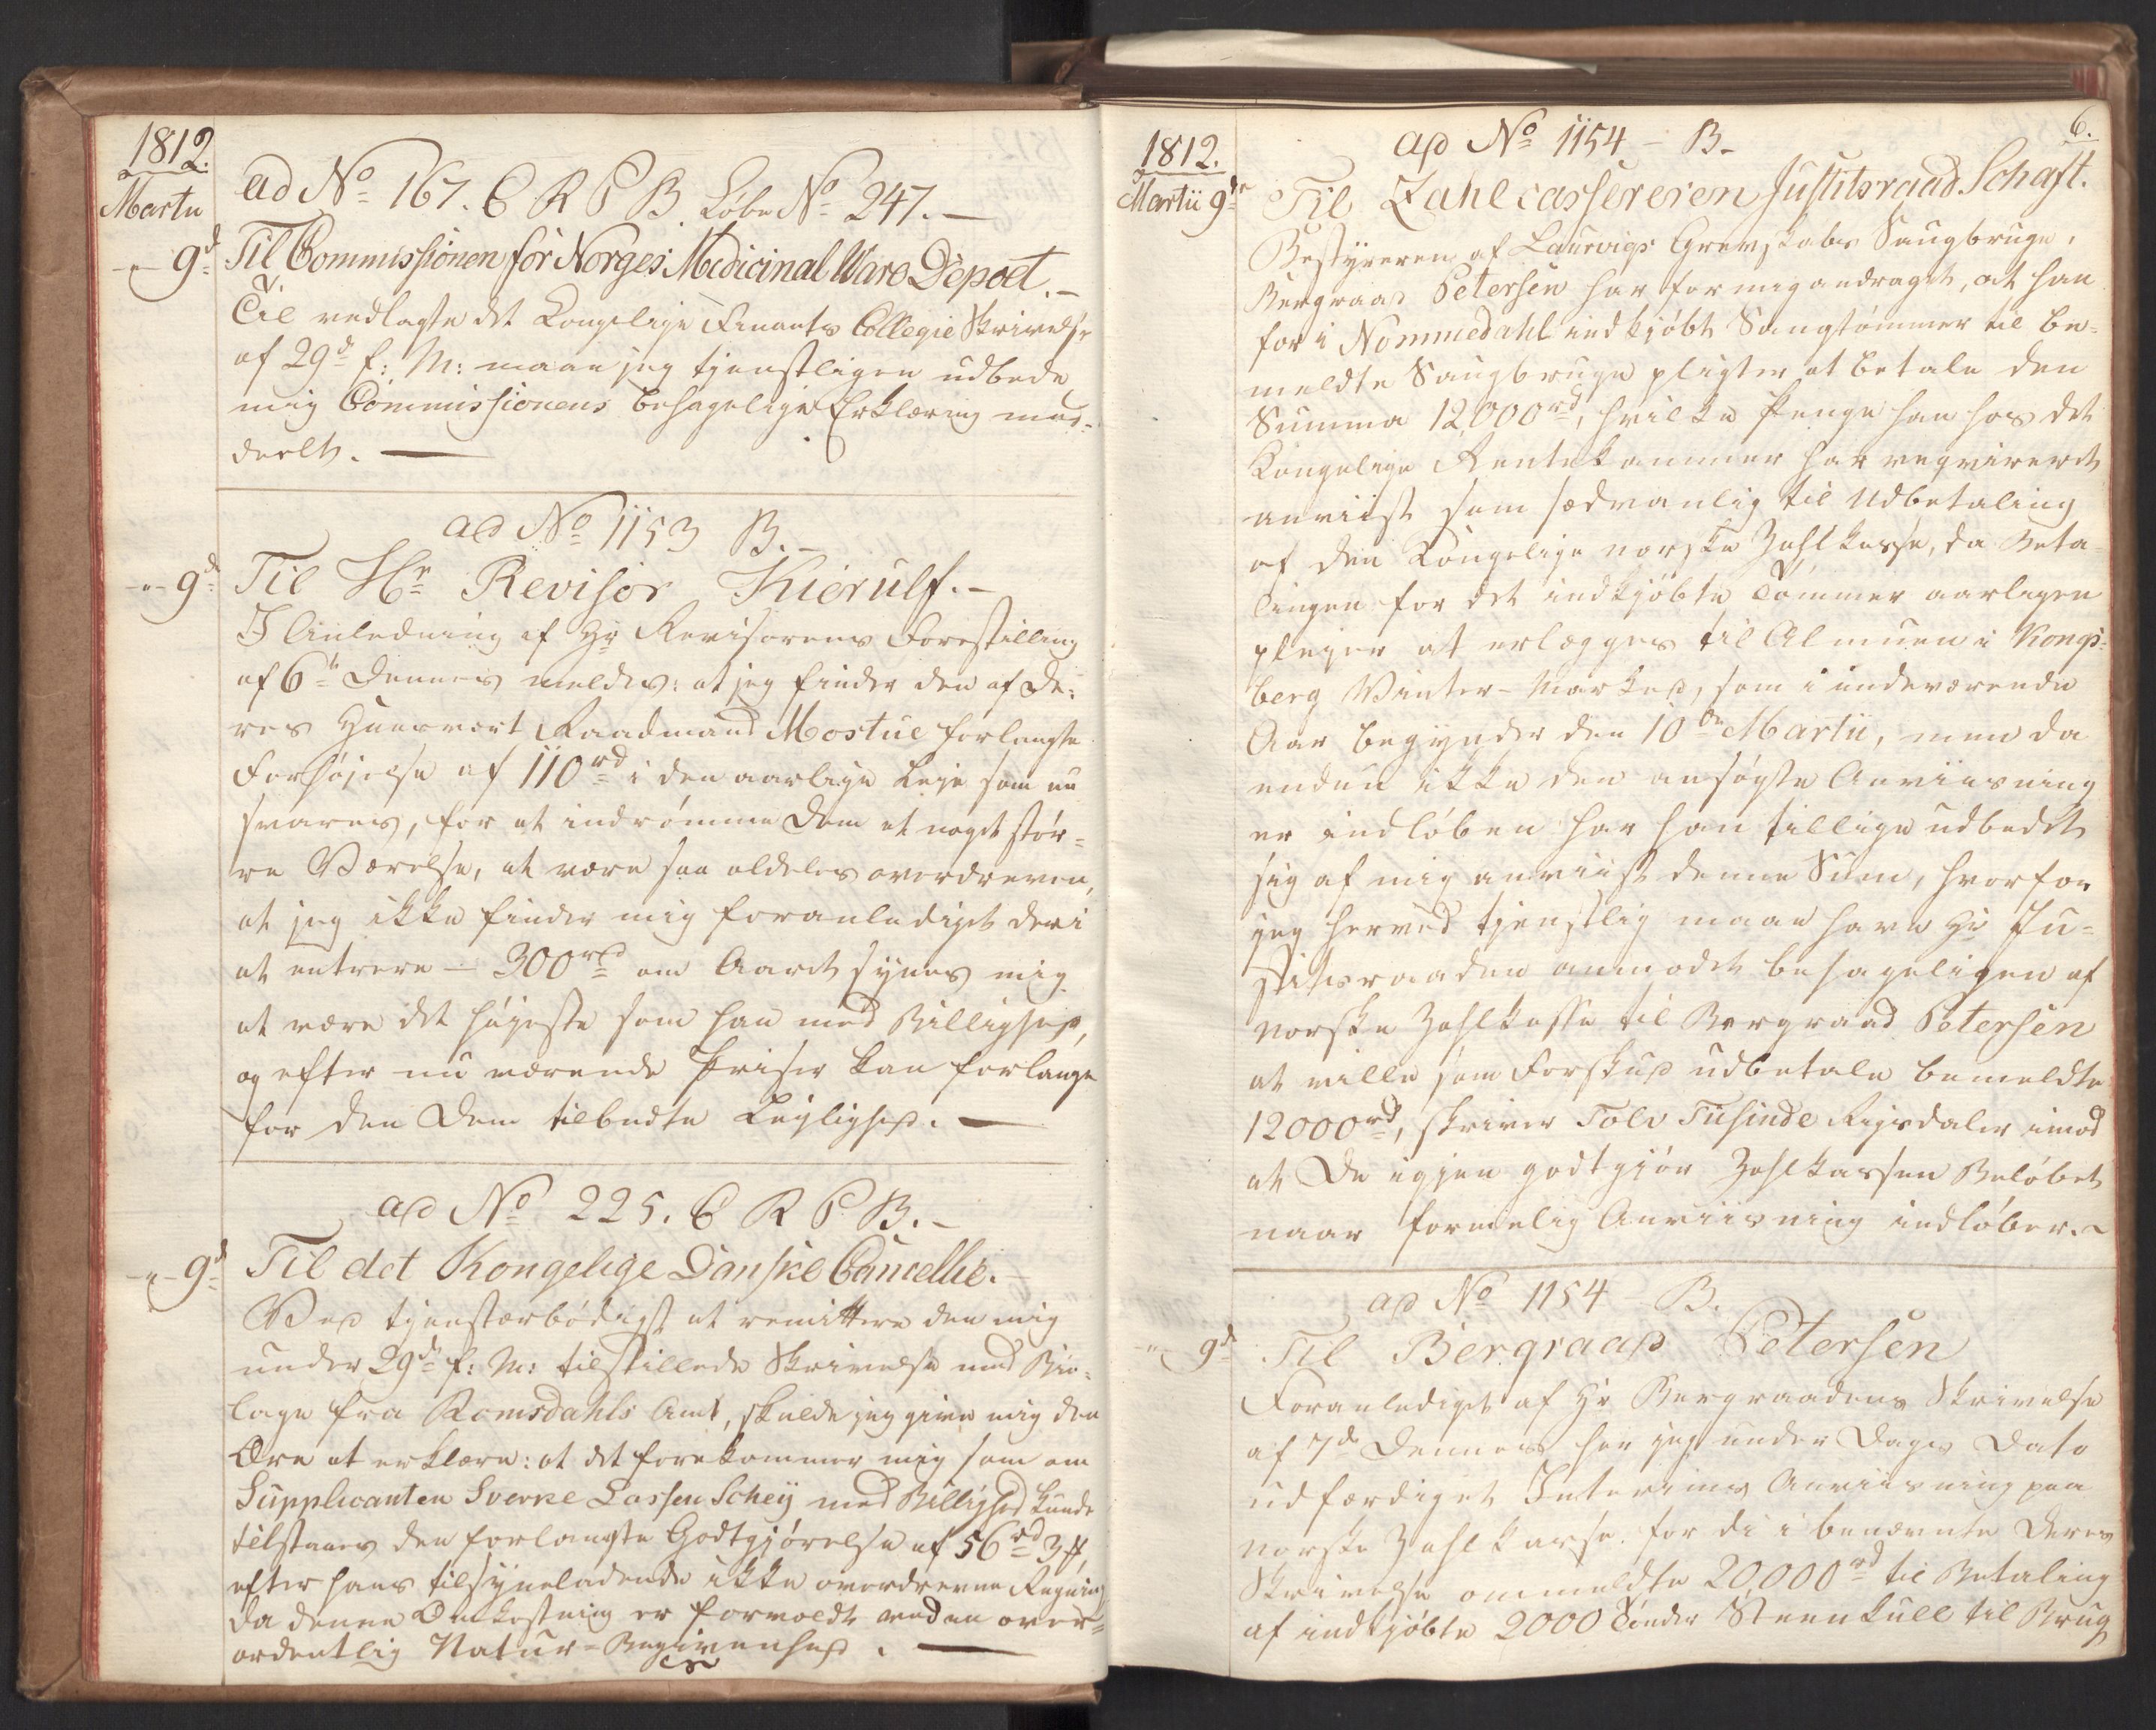 1812.
Martii
ad No 167. C R P B. Løbe No 247. —
- " - 9d Til Commissionen for Norges Medicinal Ware Depoet. –
Til vedlagte det Kongelige Finants Collegie Skrivelse
af 29d f: M: maae jeg tjenstligen udbede
mig Commissionens behagelige Erklæring med-
deelt. —
ad No 1153 B. –
- " - 9d Til Hr Revisor Kierulf. –
I Anledning af Hr Revisorens Forestilling
af 6te dennes meldes: at jeg finder den af De-
res Huusvært Raadmand Mostue forlangte
Forhøjelse af 110rd i den aarlige Leje som nu
svares, for at indrømme Dem et noget stør-
re Værelse, at være saa aldeles overdreven,
at jeg ikke finder mig foranlediget deri
at entrere — 300rd om Aaret synes mig
at være det højeste som han med Billighed,
og efter nu værende Priser kan forlange
for den Dem tilbudte Lejlighed. —
ad No 225. C R P B. –
- " - 9d Til det Kongelige Danske Cancellie.
Ved tjenstærbødigst at remittere den mig
under 29d f: M: tilstillede Skrivelse med Bi-
lage fra Romsdahls Amt, skulde jeg give mig den
Ære at erklære: at det forekommer mig som om
Supplicanten Sverke Lassen Scheij med Billighed kunde
tilstaaes den forlangte Godtgjørelse af 56rd 3 ß,
efter hans tilsyneladende ikke overdrevne Regning
da denne Omkostning er forvoldt ved en over-
ordentlig Natur-Begivenhed. —
6.
1812.
Martii 9d
ad No 1154 – B –
Til Zahlcassereren Justitsraad Schaft.
Bestyreren af Laurvigs Grevskabs Saugbruge,
Bergraad Petersen har for mig andraget, at han
for i Nommedahl indkjøbt Saugtømmer til be-
meldte Saugbruge pligter at betale den
Summa 12,000rd, hvilke Penge han hos det
Kongelige Rentekammer har reqvireret
anviist som sædvanlig til Udbetaling
af den Kongelige norske Zahlkasse, da Beta-
lingen for det indkjøbte Tømmer aarligen
plejer at erlægges til Almuen i Kongs-
berg Vinter-Marked, som i indeværende
Aar begynder den 10de Martii, men da
endnu ikke den ansøgte Anviisning
er indløben har han tillige udbedet
sig af mig anviist denne Sum, hvorfor
jeg herved tjenstlig maae have Hr Ju-
stitsraaden anmodet behageligen af
norske Zahlkasse til Bergraad Petersen
at ville som Forskud udbetale bemeldte
12000rd, skriver Tolv Tusinde Rigsdaler imod
at De igjen godtgjør Zahlkassen Beløbet
naar formelig Anviisning indløber. –
ad No 1154 – B.
- " - 9d Til Bergraad Petersen
Foranlediget af Hr Bergraadens Skrivelse
af 7de dennes har jeg under Dags Dato
udfærdiget Interims Anviisning paa
norske Zahlkasse for de i benævnte Deres
Skrivelse ommeldte 20,000rd til Betaling
af indkjøbte 2000 Tønder Steenkull til Brug